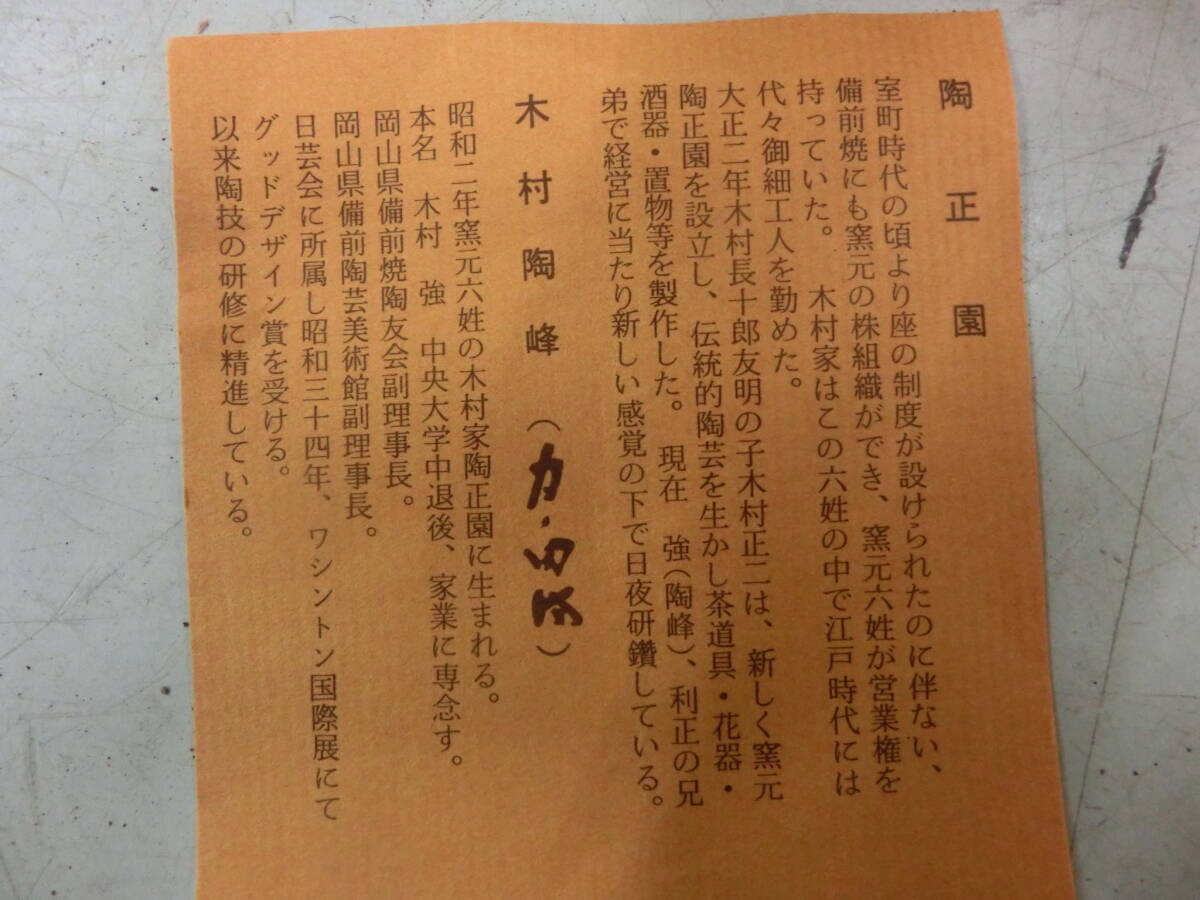 陶正園
室町時代の頃より座の制度が設けられたのに伴ない、
備前焼にも窯元の株組織ができ、窯元六姓が営業権を
持っていた。　木村家はこの六姓の中で江戸時代には
代々御細工人を勤めた。
大正二年木村長十郎友明の子木村正二は、新しく窯元
陶正園を設立し、伝統的陶芸を生かし茶道具・花器・
酒器・置物等を製作した。　現在　強（陶峰）、利正の兄
弟で経営に当たり新しい感覚の下で日夜研鑽している。
木村陶峰（　）
昭和二年窯元六姓の木村家陶正園に生まれる。
本名　木村　強　中央大学中退後、家業に専念す。
岡山県備前焼陶友会副理事長。
岡山県備前陶芸美術館副理事長。
日芸会に所属し昭和三十四年、ワシントン国際展にて
グッドデザイン賞を受ける。
以来陶技の研修に精進している。